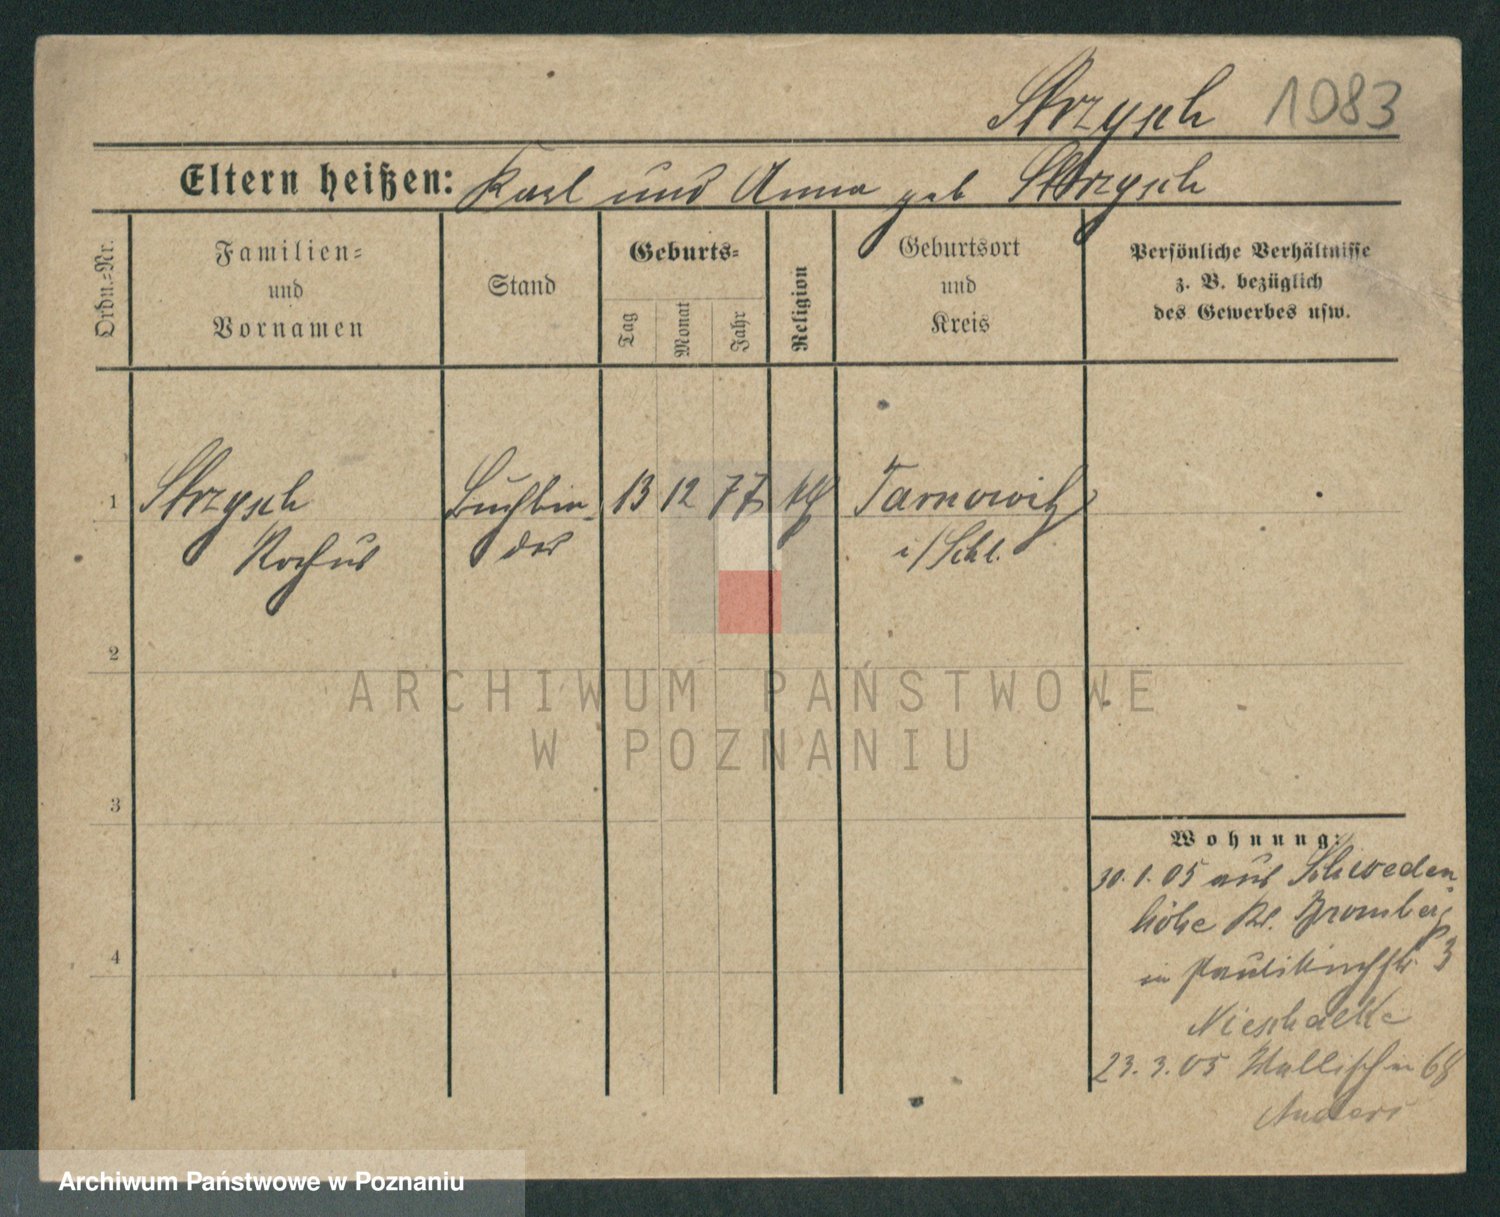 Strzysch 1083
Eltern heißen: Karl und Anna geb Strzysch
Ordn.-Nr.
Familien-
und
Vornamen
Stand
Geburts-
Tag
Monat
Jahr
Religion
Geburtsort
und
Kreis
Persönliche Verhältnisse
z. B. bezüglich
des Gewerbes usw.
1 Strzysch Buchbin- 13 12 77 Tarnowitz
Rochus der i/Schl.
2
ARCHIWUM PAŃSTWOWE
W POZNANIU
3
Wohnung:
30.1.05 aus Schweden
höhe Kr. Bromberg
4
in Paulikirchstr 3
Nieschalke
23.3.05 Wallisch 68
Anders
Archiwum Państwowe w Poznaniu